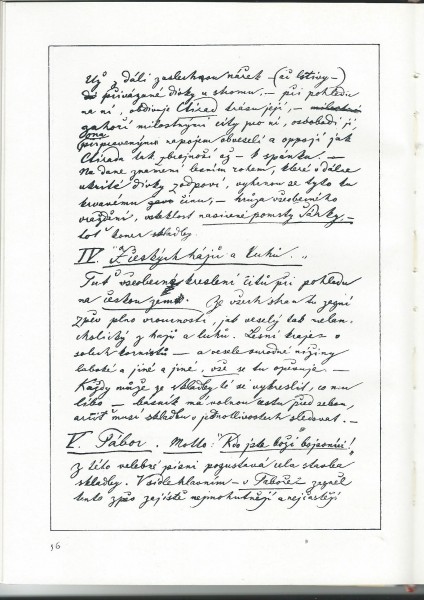 Už z dáli zaslechnou nářek — (ač lstivý —)
přivázané dívky u stromu. — při pohledu
na ni, obdivuje Ctirad krásu její, —
zahoří milostnými city pro ni, osvobodí ji,
ona připraveným nápojem obveselí a oppojí jak
Ctirada tak zbrojnoši až — k spánku. —
Na dané znamení lesním rohem, které v dálce
ukrité dívky zodpoví, vyhrnou se tyto ku
krvavému činu, — hrůza všeobecného
vraždění, vzteklost nasicené pomsty Šárky, —
toť konec skladby.
IV. "Z českých hájů a luhů."
Tuť všeobecné kreslení citů při pohledu
na českou zem. Ze všech stran tu zazní
zpěv plno vroucnosti, jak veselý tak melan-
cholický z hájů a luhů. Lesní kraje v
solech kornistů — a veselé úrodné nížiny
labské a jiné a jiné, vše se tu opěvuje. —
Každý může ze skladby té si vykreslit, co mu
libo — básník má volnou cestu před sebou,
artiť musí skladbu v jednotlivostech sledovat. —
V. Tábor. Motto: "Kdo jste boží bojovníci!"
Z této velebné písni pozůstává celá stavba
skladby. V sídle hlavním — v Táboře zazněl
tento zpěv zajisté nejmohutněji a nejčastěji
56